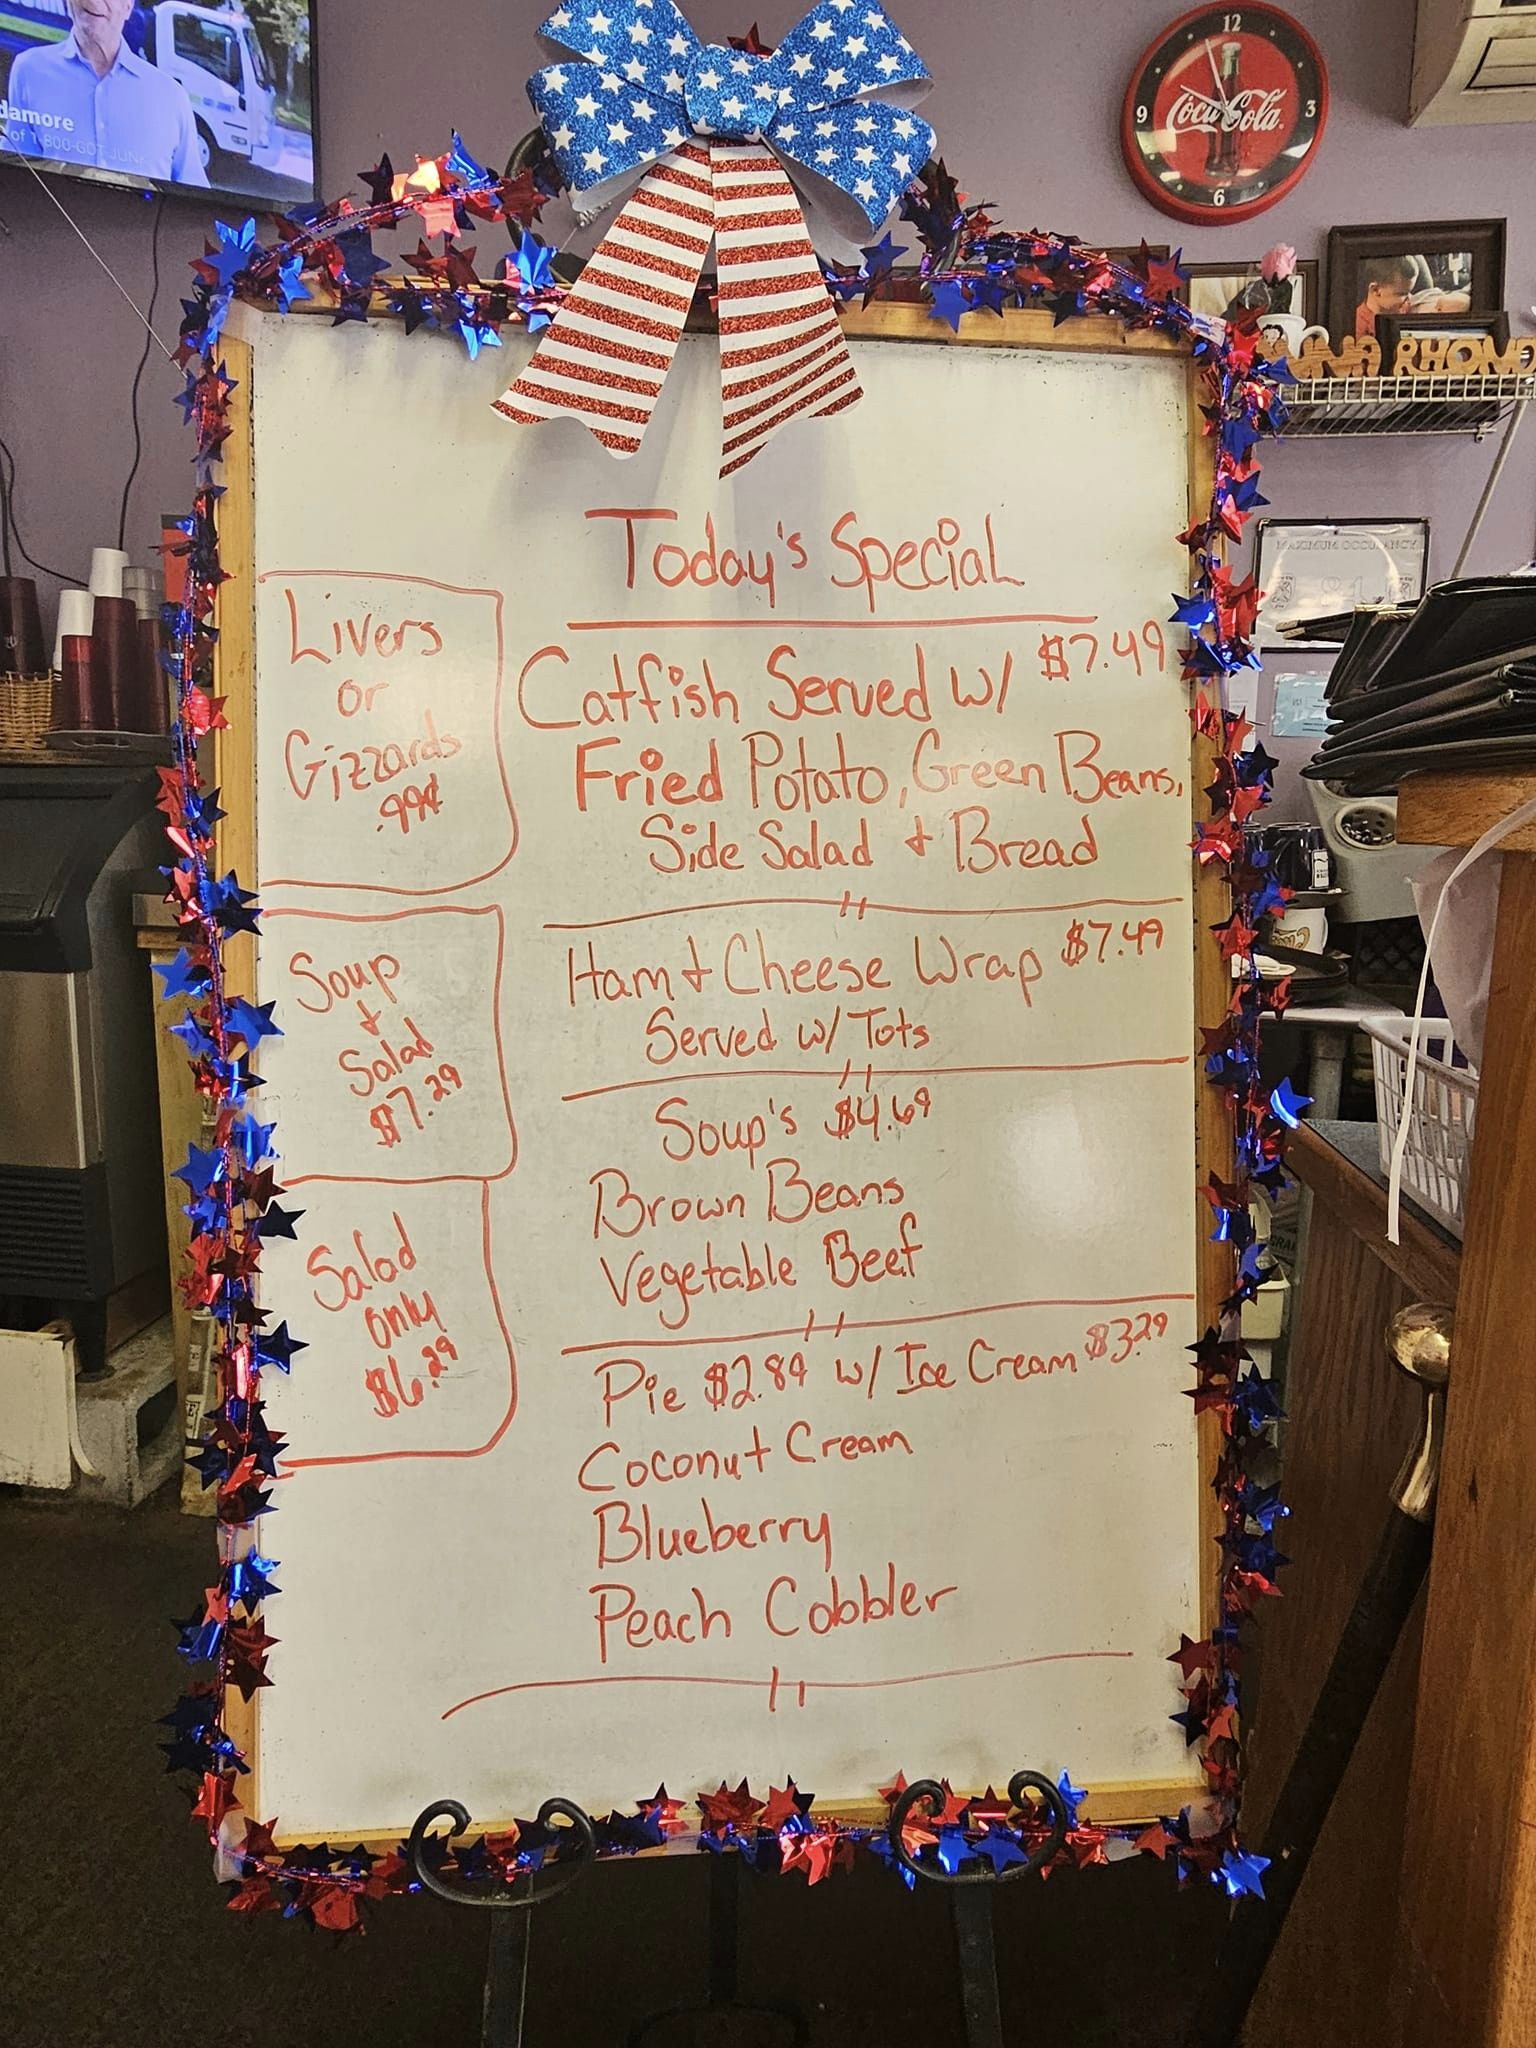 damore
of 1-800-GOT-JUN
12
3
6
9
Coca-Cola
RHOND
MAXIMUM OCCUPANCY
Today's Special
Livers
or
Gizzards
.99¢
Soup
+
Salad
$7.29
Salad
only
$6.29
Catfish Served w/ $7.49
Fried Potato, Green Beans,
Side Salad + Bread
Ham + Cheese Wrap $7.49
Served w/ Tots
Soup's $4.69
Brown Beans
Vegetable Beef
Pie $2.89 w/ Ice Cream $3.29
Coconut Cream
Blueberry
Peach Cobbler